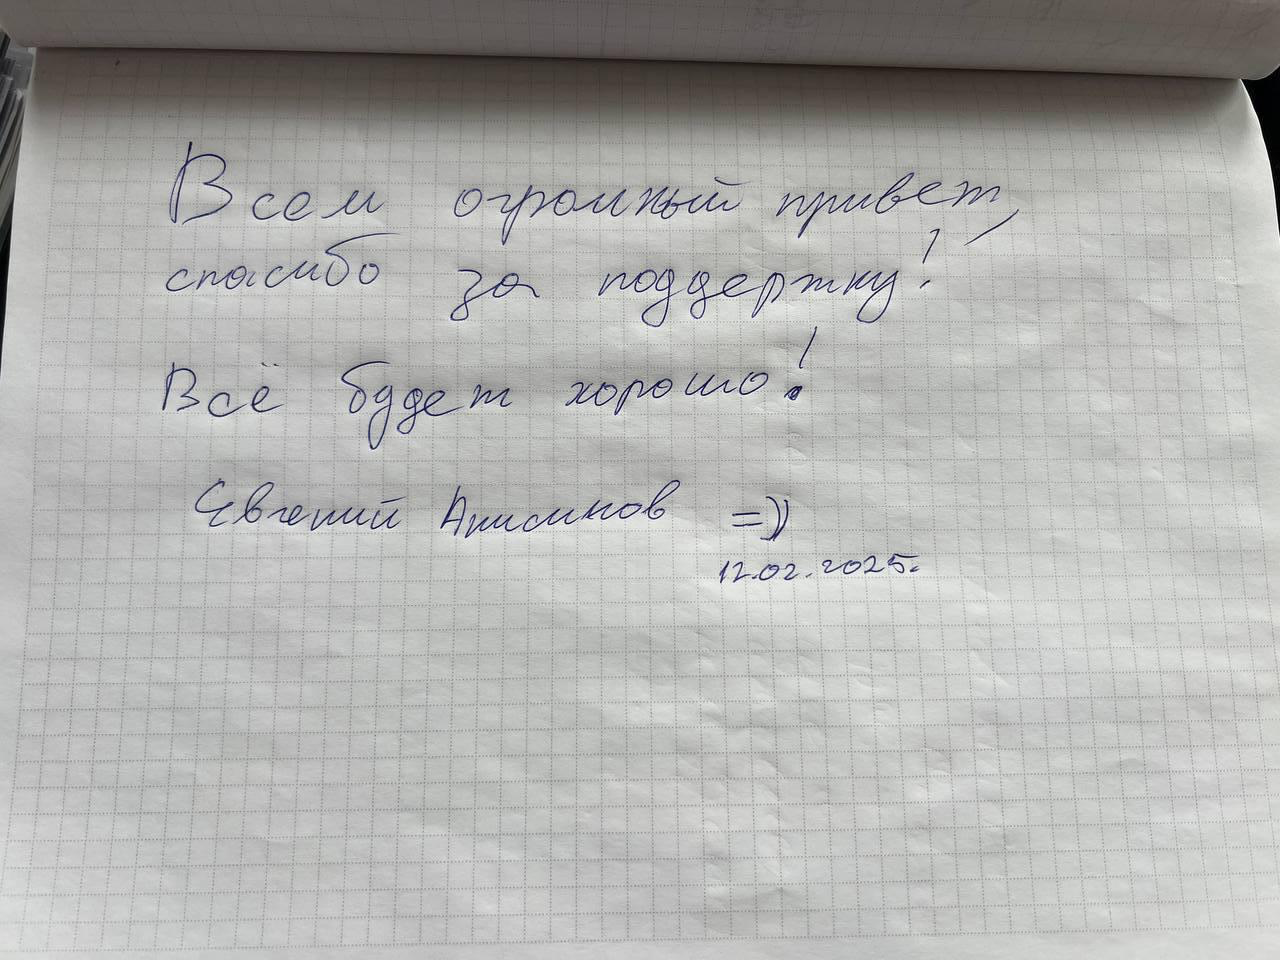 Всем огромный привет,
спасибо за поддержку!
Всё будет хорошо!
Евгений Анисимов =))
12.02.2025.